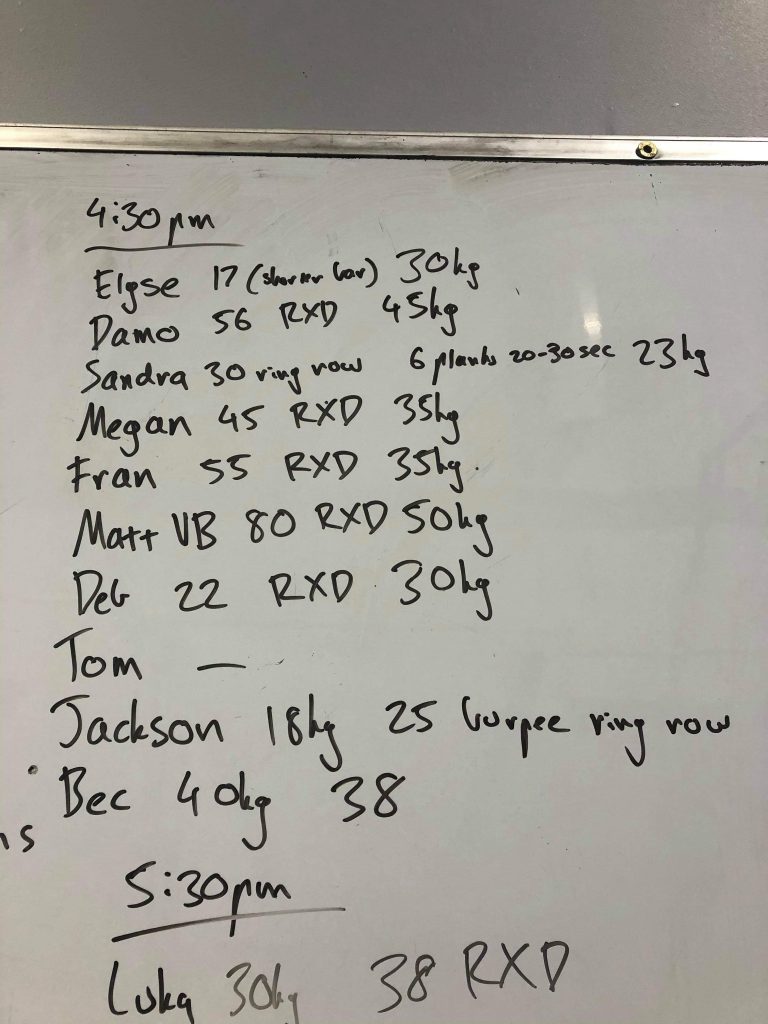 4:30pm
Elyse 17 (shorter bar) 30kg
Damo 56 RXD 45kg
Sandra 30 ring row 6 planks 20-30sec 23kg
Megan 45 RXD 35kg
Fran 55 RXD 35kg.
Matt VB 80 RXD 50kg
Deb 22 RXD 30kg
Tom —
Jackson 18kg 25 burpee ring row
Bec 40kg 38
is
5:30pm
Luka 30kg 38 RXD